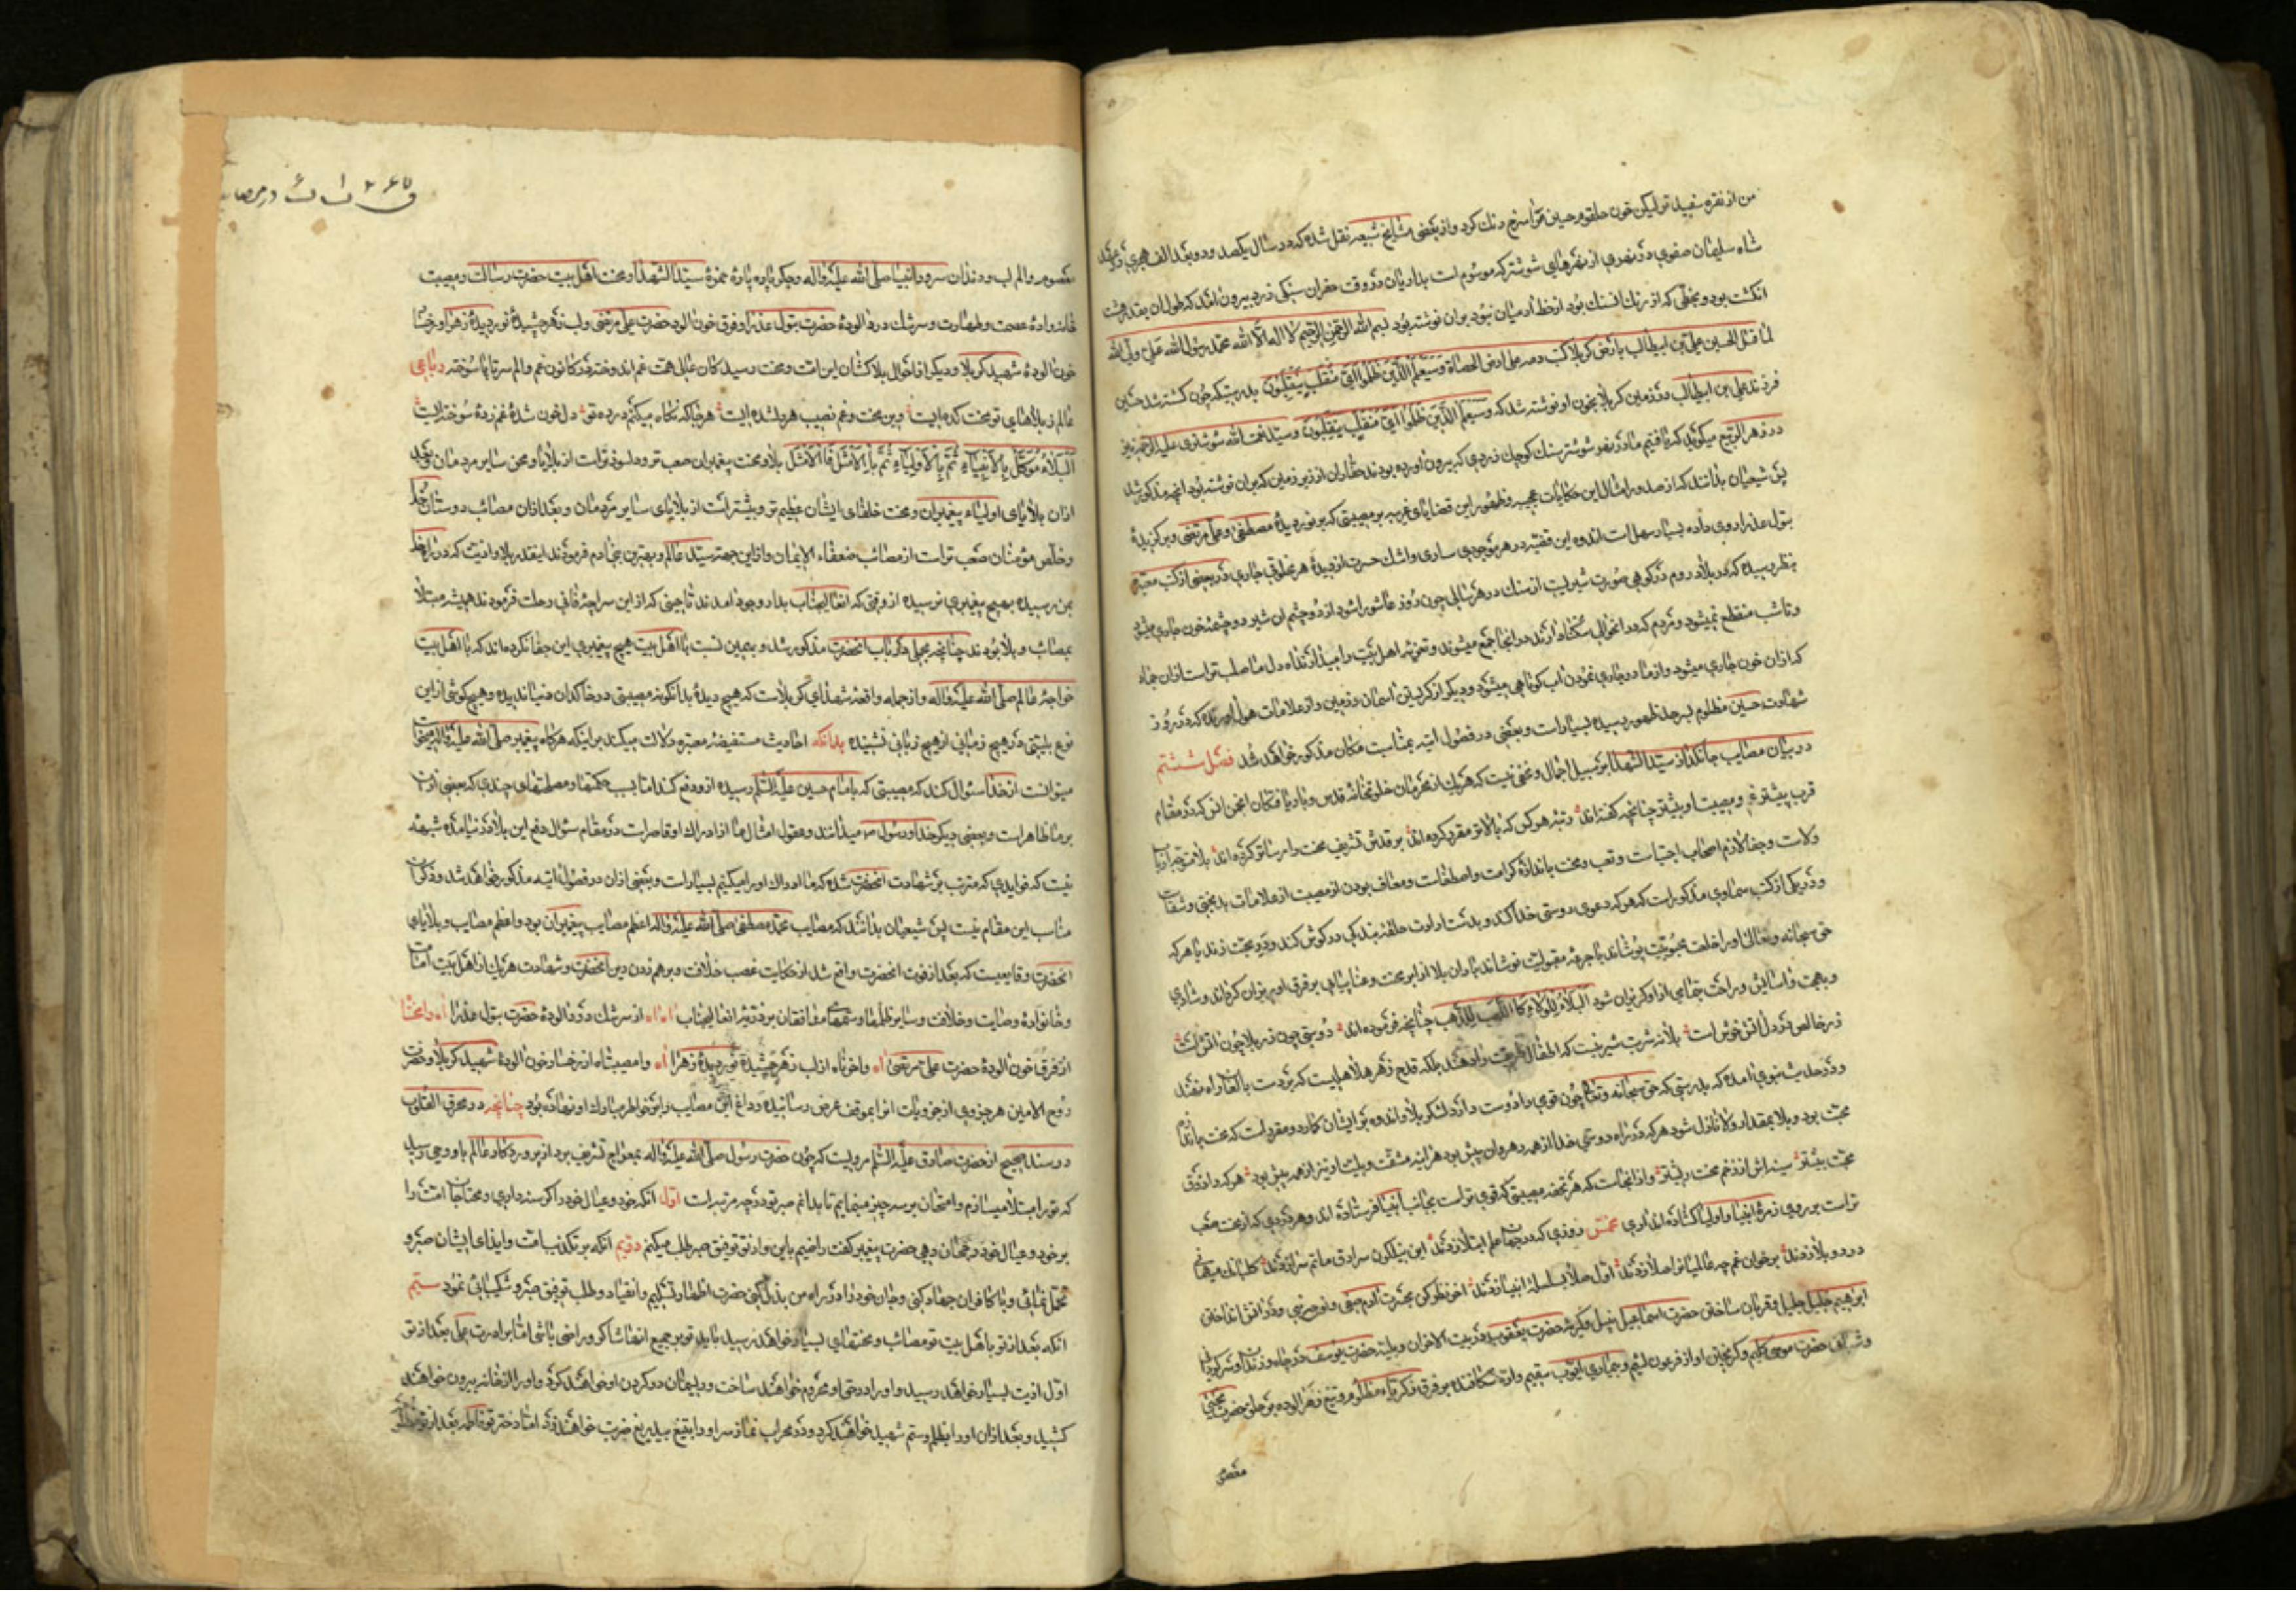 من از نقره سفید تو لیکن خون حلقوم حسین مرا سرخ رنك کرد و از بعضی مشایخ شیعه نقل شده که در سال یکصد و دو بعد الف هجری در عهد
شاه سلیمان صفوی در نهری از نهرهای شوشتر که موسوم است بداریان در وقت حفران سنکی زرد بیرون آمد که طول آن بقدر هشت
انکشت بود و بخطی که از رنك انسنك بود از خط آدمیان نبود بر آن نوشته بود بسم الله الرحمن الرحیم لا اله الا الله محمد رسول الله علی ولی الله
لما قتل الحسین بن علی بن ابیطالب بارض کربلا کتب دمه علی ارض الحصاة وسیعلم الذین ظلموا ای منقلب ینقلبون بدرستیکه چون کشته شد حسین
فرزند علی بن ابیطالب در زمین کربلا بخون او نوشته شد که وسیعلم الذین ظلموا ای منقلب ینقلبون و سید نعمت الله شوشتری علیه الرحمه نیز
در زهر الربیع میکوید که یافتیم ما در نهر شوشتر سنك کوچك زردی که بیرون آورده بودند حفاران از زیر زمین که بر آن نوشته بود آنچه مذکور شد
پس شیعیان بدانند که از صدور امثال این حکایات عجیبه و ظهور این قضایای غریبه بر مصیبتی که بر نور دیدهٔ مصطفی و علی مرتضی و برکزیدهٔ
بتول عذرا روی داده بسیار سهل است اندوه این قضیه در هر موجودی ساری و اشك حسرت از دیدهٔ هر مخلوقی جاری در بعضی از کتب معتبره
بنظر رسیده که در بلاد روم در کوهی صورت شیریست از سنك در هر سالی چون روز عاشورا شود از دو چشم آن شیر دو چشمهٔ خون جاری میشود
و تا شب منقطع نمیشود و مردم که در انحوالی سکنا دارند در انجا جمع میشوند و تعزیهٔ اهل بیت را میدارند آه دل ما صلب تر است از ان جماد
که از ان خون جاری میشود و از ما در جاری نمودن آب کوتاهی میشود و دیکر از کریستن آسمان و زمین و از علامات هول آورنده که در روز
شهادت حسین مظلوم بسرحد ظهور رسیده بسیار است و بعضی در فصول آتیه بمناسبت مکان مذکور خواهد شد فصل ششم
در بیان مصایب جانکداز سید الشهدا بر سبیل اجمال و مخفی نیست که هر یك از محرمان خلوتخانهٔ قدس و باریافتکان انجمن انس که در مقام
قرب پیشتر غم و مصیبت او بیشتر چنانچه کفته‌اند رتبهٔ هر کس که بالاتر مقرر کرده اند بر قدش تشریف محنت را رساتر کرده اند بلا مرتبهٔ ارباب
ولاست و جفا لازم اصحاب اجتباست و تعب و محنت باندازهٔ کرامت و اصطفاست و معاف بودن از مصیبت از علامات بدبختی و شقاست
و در یکی از کتب سماوی مذکور است که هر که دعوی دوستی خدا کند و بدست ارادت حلقهٔ بندکی در کوش کند و در محبت زند یا هر که
حق سبحانه و تعالی او را خلعت محبوبیت پوشاند یا جرعهٔ مقبولیت نوشاند باران بلا از ابر محنت و عنا پیاپی بر فرق او ریزان کرداند و شادی
و بهجت و آسایش و راحت چون تیر از او کریزان شود البلاء للولاء کاللهب للذهب چنانچه فرموده اند دوستی چون زر بلا چون آتش است
زر خالص در دل آتش خوش است بلا نه شربت شیرینیست که اطفال طریقت را دهند بلکه قدح زهر هلاهلیست که بر دست بالغان راه نهند
و در حدیث نبوی آمده که بدرستی که حق سبحانه و تعالی چون قومی را دوست دارد لشکر بلا و اندوه بر ایشان کمارد و مقرر است که محنت باندازهٔ
محبت بود و بلا بمقدار ولا نازل شود هر که در راه دوستی خدا از همه رهروان پیش بود هر اینه مشقت و بلیت او نیز از همه بیش بود هر که در او ذوق
محبت بیشتر سینه اش از زخم محنت ریشتر و از اینجاست که هر تحفهٔ مصیبتی که قوی تر است بجانب انبیا فرستاده اند و هر دردی که از محنت صعب
تر است بر روی زمرهٔ انبیا و اولیا کشاده اند آری مخمس روزی که در جهان علم ابتلا زدند این نیلکون سرادق ماتم سرا زدند کلبانك میهمانی
درد و بلا زدند بر خوان غم چه عالمیان را صلا زدند اول صلا بسلسلهٔ انبیا زدند آخر نظر کن بحضرت آدم صفی و نوح نجی و در آتش انداختن
ابراهیم خلیل جلیل و قربان ساختن حضرت اسماعیل نبیل و کریهٔ حضرت یعقوب در بیت الاحزان و بلیهٔ حضرت یوسف در چاه و زندان و سرکردانی
و شبانی حضرت موسی کلیم و کریختن او از فرعون لئیم و بیماری ایوب سقیم و ارهٔ شکافنده بر فرق زکریاء مظلوم و تیغ زهر آلوده بر حلق حضرت یحیی
معصوم
در مصائب
معصوم و الم لب و دندان سرور انبیا صلی الله علیه و اله و جکر پاره پارهٔ حمزهٔ سید الشهدا و محنت اهل بیت حضرت رسالت و مصیبت
خانوادهٔ عصمت و طهارت و سرشك درد آلودهٔ حضرت بتول عذرا و فرق خون آلود حضرت علی مرتضی و لب زهر چشیدهٔ نور دیدهٔ زهرا و رخسار
خون آلودهٔ شهید کربلا و دیکر از احوال بلاکشان این امت و محنت رسیدکان عالی همت غم اند وختر قد کانون غم و الم سر تا پا سوخته رباعی
عالم ز بلاهای تو محنت کده ایست وین محنت و غم نصیب هر دلشده ایست هر جا که نکاه میکنم در ره تو دل خون شدهٔ غم زدهٔ سوخته ایست
البلاء موکل بالانبیاء ثم بالاولیاء ثم بالامثل فالامثل بلا و محنت پیغمبران صعب تر و دلسوز تر است از بلایا و محن سایر مردمان و بعد
از ان بلایای اولیاء پیغمبران و محنت خلفای ایشان عظیم تر و بیشتر است از بلایای سایر مردمان و بعد از ان مصائب دوستان خدا
و خلص مؤمنان صعب تر است از مصائب ضعفاء الایمان و از این جهة سید عالم و بهترین بنی آدم فرمودند اینقدر بلا و اذیت که در راه خدا
بمن رسیده بهیچ پیغمبری نرسیده از وقتی که انعالیجناب بدار وجود آمدند تا حینی که از این سراچهٔ فانی رحلت فرمودند همیشه مبتلا
بمصائب و بلا بودند چنانچه مجملی در باب انحضرت مذکور شد و بهمین نسبت با اهل بیت هیچ پیغمبری این جفا نکرده‌اند که با اهل بیت
خواجهٔ عالم صلی الله علیه و اله و از جمله واقعهٔ شهدای کربلاست که هیچ دیدهٔ بدانکونه مصیبتی در خاکدان دنیا ندیده و هیچ کوشی از این
نوع بلیتی در هیچ زمانی از هیچ زبانی نشنیده بدانکه احادیث مستفیضهٔ معتبره دلالت میکند بر اینکه هرکاه پیغمبر صلی الله علیه و اله میخواست
میتوانست از خدا سئوال کند که مصیبتی که بامام حسین علیه السلام رسیده از او دفع کند اما بسبب حکمتها و مصلحتهای چندی که بعضی از ان
بر ما ظاهر است و بعضی دیکر خدا و رسول ص میدانند و عقول امثال ما از ادراك او قاصر است در مقام سئوال دفع این بلا در نیامده شبهه
نیست که فوایدی که مترتب بر شهادت انحضرت شده که ما ادراك او را میکنیم بسیار است و بعضی از ان در فصول آتیه مذکور خواهد شد و ذکر ان
مناسب این مقام نیست پس شیعیان بدانند که مصایب محمد مصطفی صلی الله علیه و اله اعظم مصایب پیغمبران بود و اعظم مصایب و بلایای
انحضرت وقایعیست که بعد از فوت انحضرت واقع شد از حکایت غصب خلافت و برهم زدن دین انحضرت و شهادت هر یك از اهل بیت امامت
و خانوادهٔ وصایت و خلافت و سایر ظلمها و ستمهای منافقان بر ذریهٔ انعالیجناب آه آه از سرشك درد آلودهٔ حضرت بتول عذرا آه وا محنتا
از فرق خون آلودهٔ حضرت علی مرتضی آه وا حزناه از لب زهر چشیدهٔ نور دیدهٔ زهرا آه وا مصیبتاه از رخسار خون آلودهٔ شهید کربلا و حضرت
روح الامین هر جزوی از جزویات انرا بموقف عرض رسانیده و داغ این مصایب را بر خواطر مبارك او نهاده بود چنانچه در محرق القلوب
در سند صحیح از حضرت صادق علیه السلام مرویست که چون حضرت رسول صلی الله علیه و اله بمعراج تشریف برد از پروردکار عالم باو وحی رسید
که تو را مبتلا میسازم و امتحان بر سه چیز مینمایم تا بدانم صبر تو در چه مرتبه است اول آنکه خود و عیال خود را کرسنه داری و محتاجان امت را
بر خود و عیال خود رجحان دهی حضرت پیغمبر کفت راضیم باین و از تو توفیق صبر طلب میکنم دویم آنکه بر تکذیب امت و ایذای ایشان صبر و
تحمل نمائی و با کافران جهاد کنی و جان خود را در راه من بذل کنی حضرت اظهار تسلیم و انقیاد و طلب توفیق صبر و شکیبائی نمود سیم
آنکه بعد از تو باهل بیت تو مصائب و محنتهای بسیار خواهد رسید باید تو بر جمیع انها شاکر و راضی باشی اما برادرت علی بعد از تو
اول اذیت بسیار خواهد رسید و او را از حق او محروم خواهند ساخت و ریسمان در کردن او خواهند کرد و او را از خانه بیرون خواهند
کشید و بعد از ان او را بظلم و ستم شهید خواهند کرد و در محراب نماز سر او را بتیغ بیدریغ ضربت خواهند زد اما دختر تو فاطمه بعد از تو